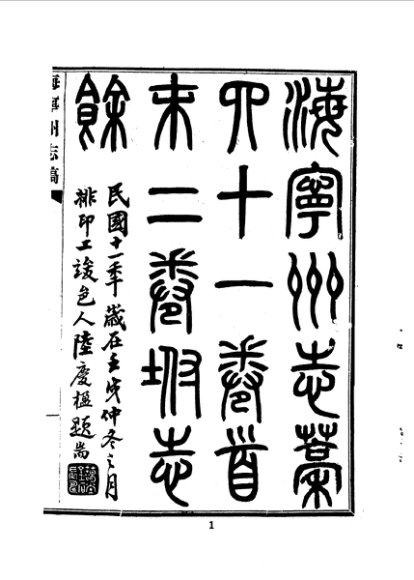 海寧州志藁
四十一卷首
末二卷坿志
餘
民國十一年歲在壬戌仲冬之月
排印工竣邑人陸慶楹題耑
海寧州志稿
1